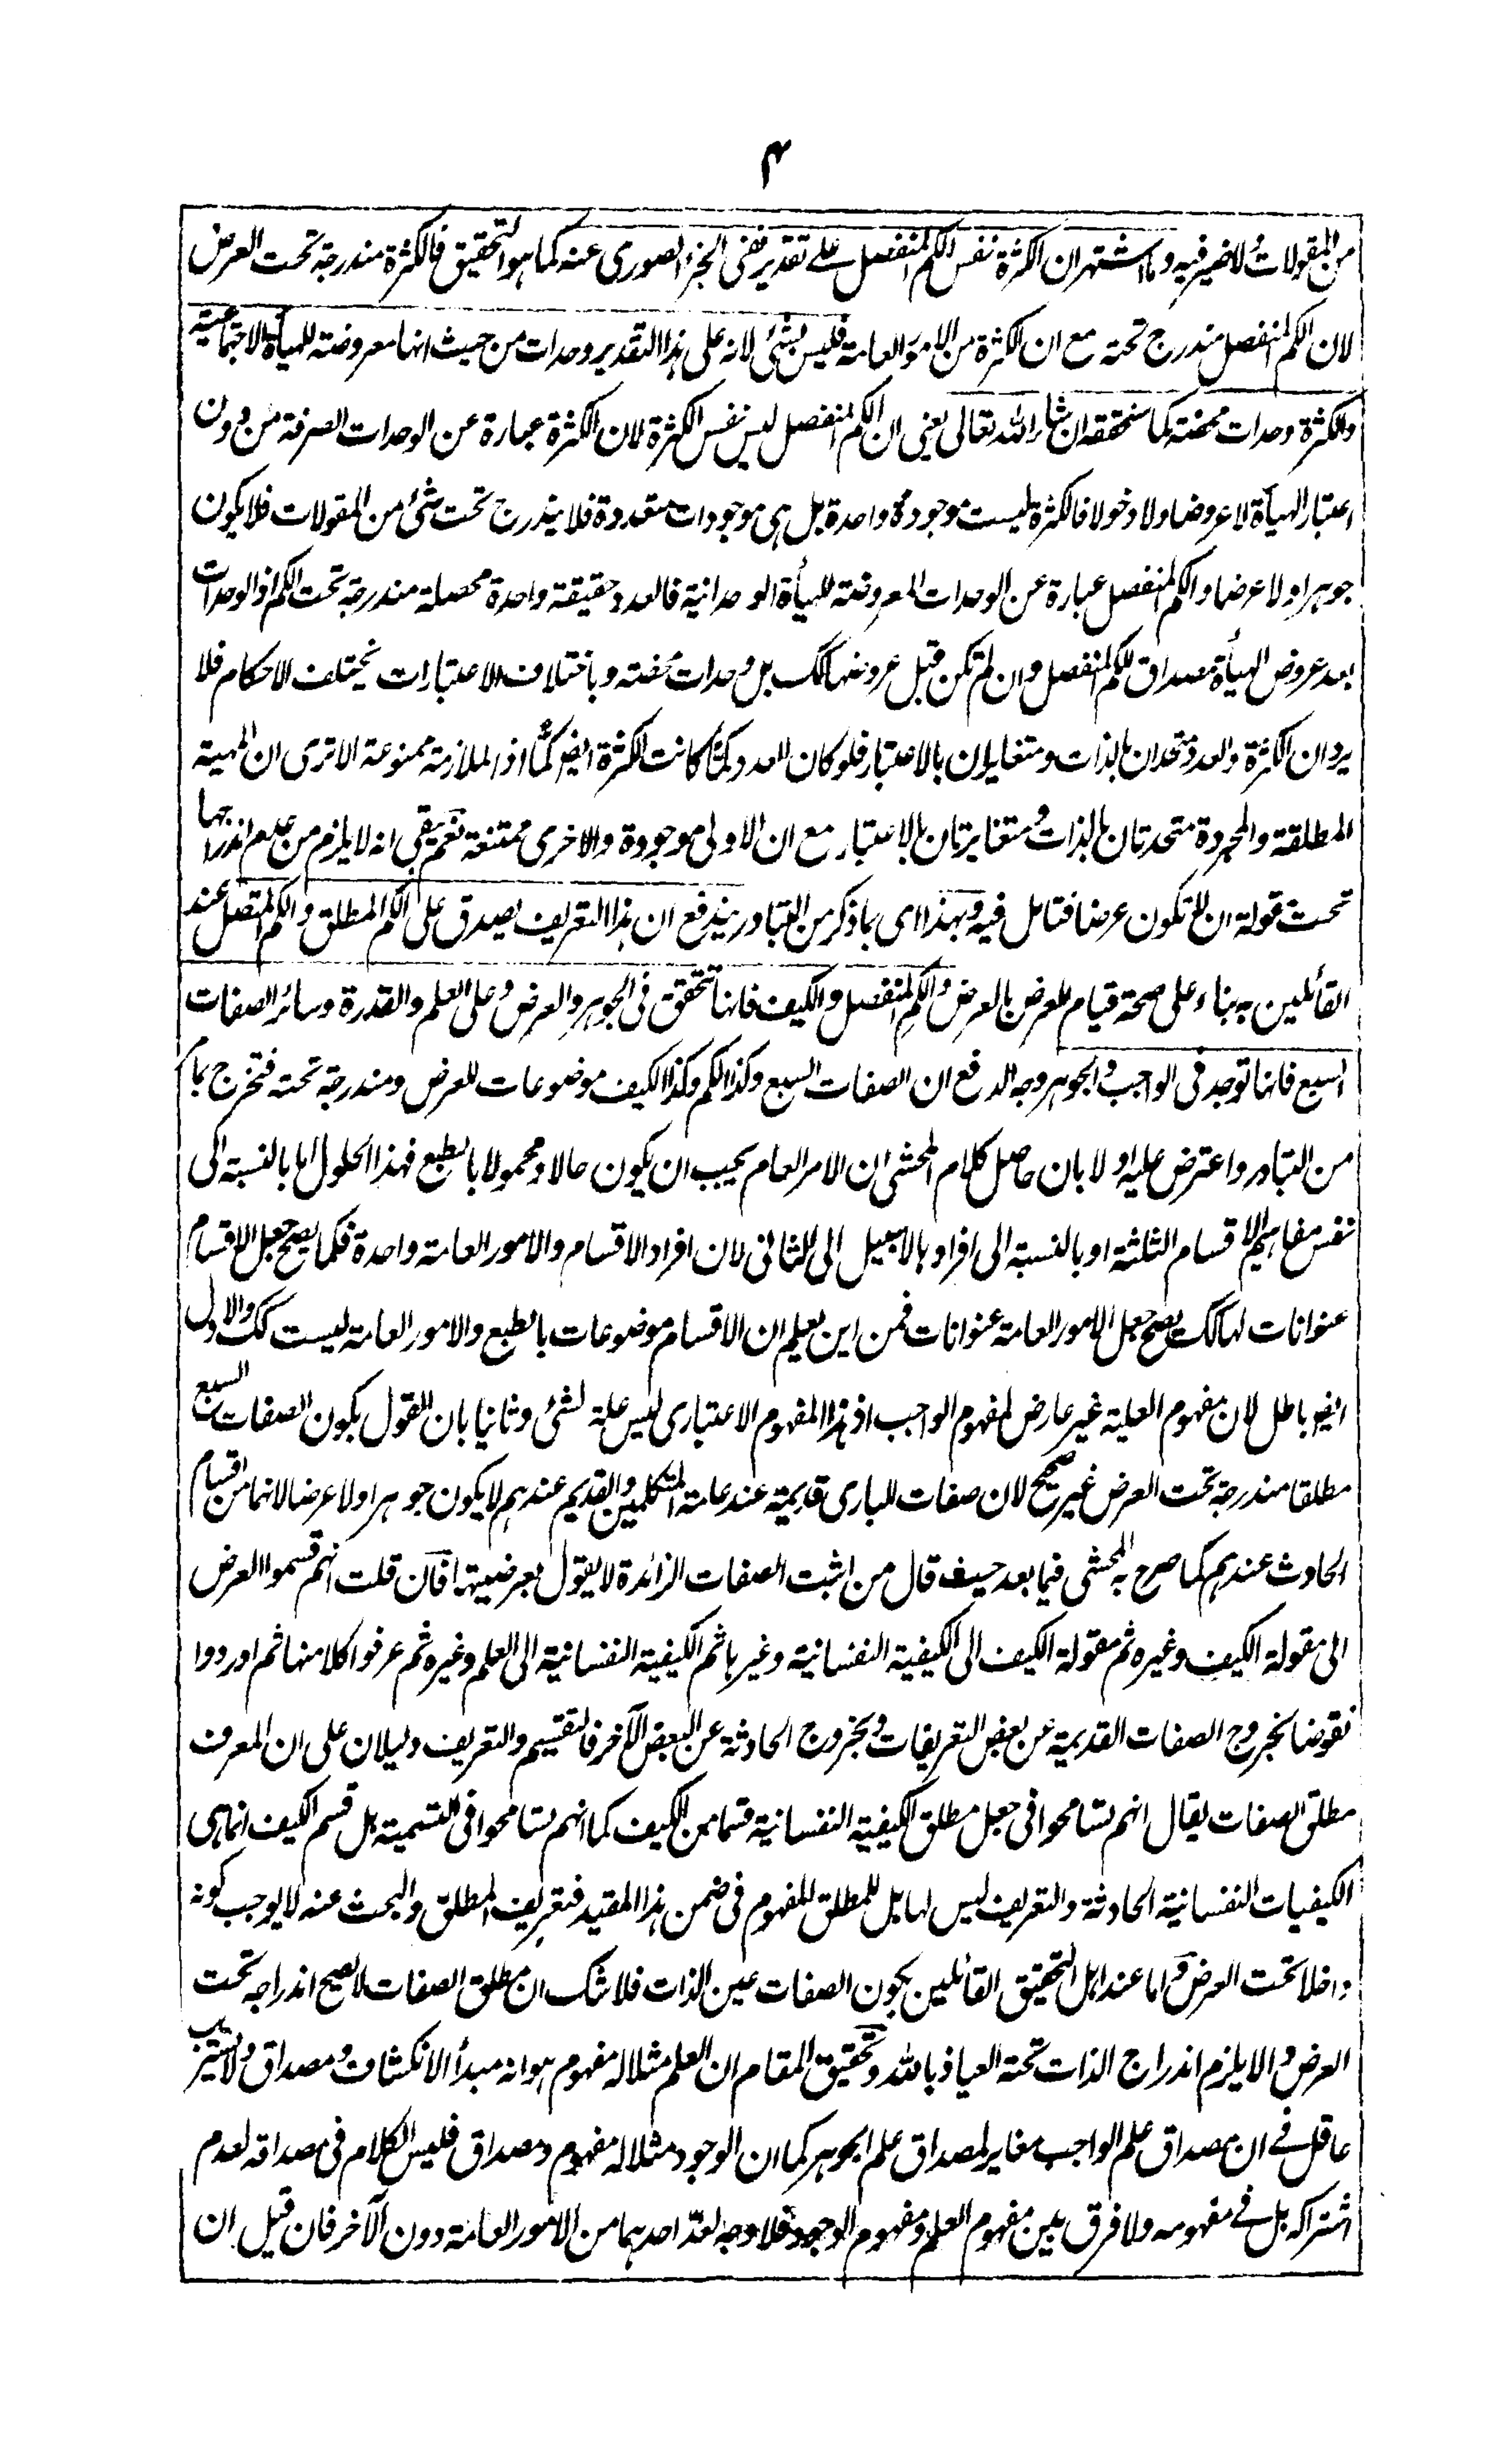 ۴
من المقولات لاضير فيه وما اشتهر ان الكثرة نفس الكم المنفصل على تقدير نفى الجزء الصورى عنه كما هو التحقيق فالكثرة مندرجة تحت العرض
لان الكم المنفصل مندرج تحته مع ان الكثرة من الامور العامة فليس بشئ لانه على هذا التقدير وحدات من حيث انها معروضة للهيأة الاجتماعية
والكثرة وحدات محضة كما ستحققه ان شاء الله تعالى يعنى ان الكم المنفصل ليس نفس الكثرة لان الكثرة عبارة عن الوحدات الصرفة من دون
اعتبار الهيأة لا عروضا ولا دخولا فالكثرة ليست موجودة واحدة بل هى موجودات متعددة فلا يندرج تحت شئ من المقولات فلا يكون
جوهرا ولا عرضا والكم المنفصل عبارة عن الوحدات المعروضة للهيأة الوحدانية فالعدد حقيقة واحدة محصلة مندرجة تحت الكم اذ الوحدات
بعد عروض الهيأة مصداق للكم المنفصل وان لم تكن قبل عروضها كك بل وحدات محضة وباختلاف الاعتبارات يختلف الاحكام فلا
يرد ان الكثرة والعدد متحدان بالذات ومتغايران بالاعتبار فلو كان العدد كمّا كانت الكثرة ايضر كمّا اذ الملازمة ممنوعة الا ترى ان المهية
المطلقة والمجردة متحدتان بالذات ومتغايرتان بالاعتبار مع ان الاولى موجودة والاخرى ممتنعة نعم يبقى انه لا يلزم من عدم اندراجها
تحت مقولة ان لا تكون عرضا فتامل فيه وبهذا اى بما ذكر من التبادر يندفع ان هذا التعريف يصدق على الكم المطلق والكم المتصل عند
القائلين به بناء على صحة قيام العرض بالعرض والكم المنفصل والكيف فانها تتحقق فى الجوهر والعرض وعلى العلم والقدرة وسائر الصفات
السبع فانها توجد فى الواجب والجوهر وجه الدفع ان الصفات السبع وكذا الكم وكذا الكيف موضوعات للعرض ومندرجة تحته فتخرج بما
من التبادر واعترض عليه اولا بان حاصل كلام المحشى ان الامر العام يجب ان يكون حالا ومحمولا بالطبع فهذا الحلول اما بالنسبة الى
نفس مفاهيم الاقسام الثلثة او بالنسبة الى افرادها لاسبيل الى الثانى لان افراد الاقسام والامور العامة واحدة فكما يصح جعل الاقسام
عنوانات لها كك يصح جعل الامور العامة عنوانات فمن اين يعلم ان الاقسام موضوعات بالطبع والامور العامة ليست كك والاول
ايضر باطل لان مفهوم العلية غير عارض لمفهوم الواجب اذ هذا المفهوم الاعتبارى ليس علة لشئ وثانيا بان القول بكون الصفات السبع
مطلقا مندرجة تحت العرض غير صحيح لان صفات البارى قديمة عند عامة المتكلمين والقديم عندهم لا يكون جوهرا ولا عرضا لانهما من اقسام
الحادث عندهم كما صرح به المحشى فيما بعد حيث قال من اثبت الصفات الزائدة لا يقول بعرضيتها فان قلت انهم قسموا العرض
الى مقولة الكيف وغيره ثم مقولة الكيف الى الكيفية النفسانية وغيرها ثم الكيفية النفسانية الى العلم وغيره ثم عرفوا كلا منها ثم اوردوا
نقوضا بخروج الصفات القديمة عن بعض التعريفات وبخروج الحادثة عن البعض الآخر فالتقسيم والتعريف دليلان على ان المعرف
مطلق الصفات يقال انهم تسامحوا فى جعل مطلق الكيفية النفسانية قسما من الكيف كما انهم تسامحوا فى التسمية بل قسم الكيف انما هى
الكيفيات النفسانية الحادثة والتعريف ليس لها بل للمطلق المفهوم فى ضمن هذا المقيد فتعريف المطلق والبحث عنه لا يوجب كونه
داخلا تحت العرض واما عند اهل التحقيق القائلين بكون الصفات عين الذات فلا شك ان مطلق الصفات لا يصح اندراجه تحت
العرض والا يلزم اندراج الذات تحته العياذ بالله وتحقيق المقام ان العلم مثلا له مفهوم هو انه مبدأ الانكشاف ومصداق ولا يستريب
عاقل فى ان مصداق علم الواجب مغاير لمصداق علم الجوهر كما ان الوجود مثلا له مفهوم ومصداق فليس الكلام فى مصداقه لعدم
اشتراكه بل فى مفهومه ولا فرق بين مفهوم العلم ومفهوم الوجود فلا وجه لعدّ احدهما من الامور العامة دون الآخر فان قيل ان